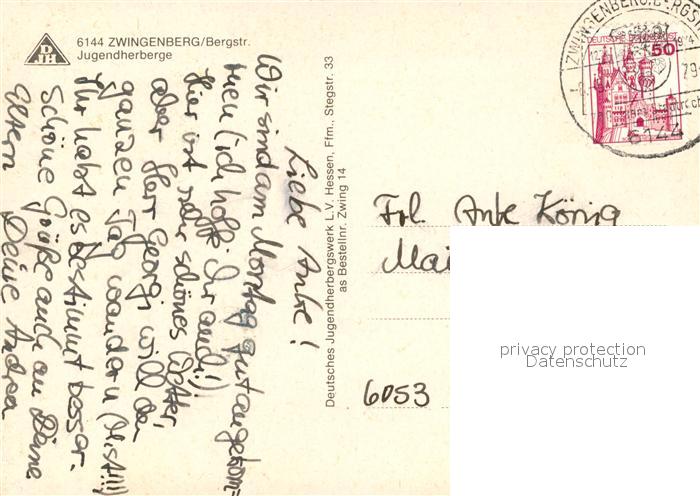 6144 ZWINGENBERG/Bergstr.
Jugendherberge
DJH
Liebe Anke!
Wir sind am Montag gut angekom-
men (ich hoffe Ihr auch!).
Hier ist sehr schönes Wetter,
aber Herr Georgi will den
ganzen Tag wandern (Mist!!!)
Ihr habt es bestimmt besser.
Schöne Grüße auch an Deine
Eltern Deine Andrea
Deutsches Jugendherbergswerk L.V. Hessen, Ffm., Stegstr. 33
as Bestellnr. Zwing 14
ZWINGENBERG, BERGSTR
DEUTSCHE BUNDESPOST
50
6144
Frl. Anke König
Mai
6053
privacy protection
Datenschutz